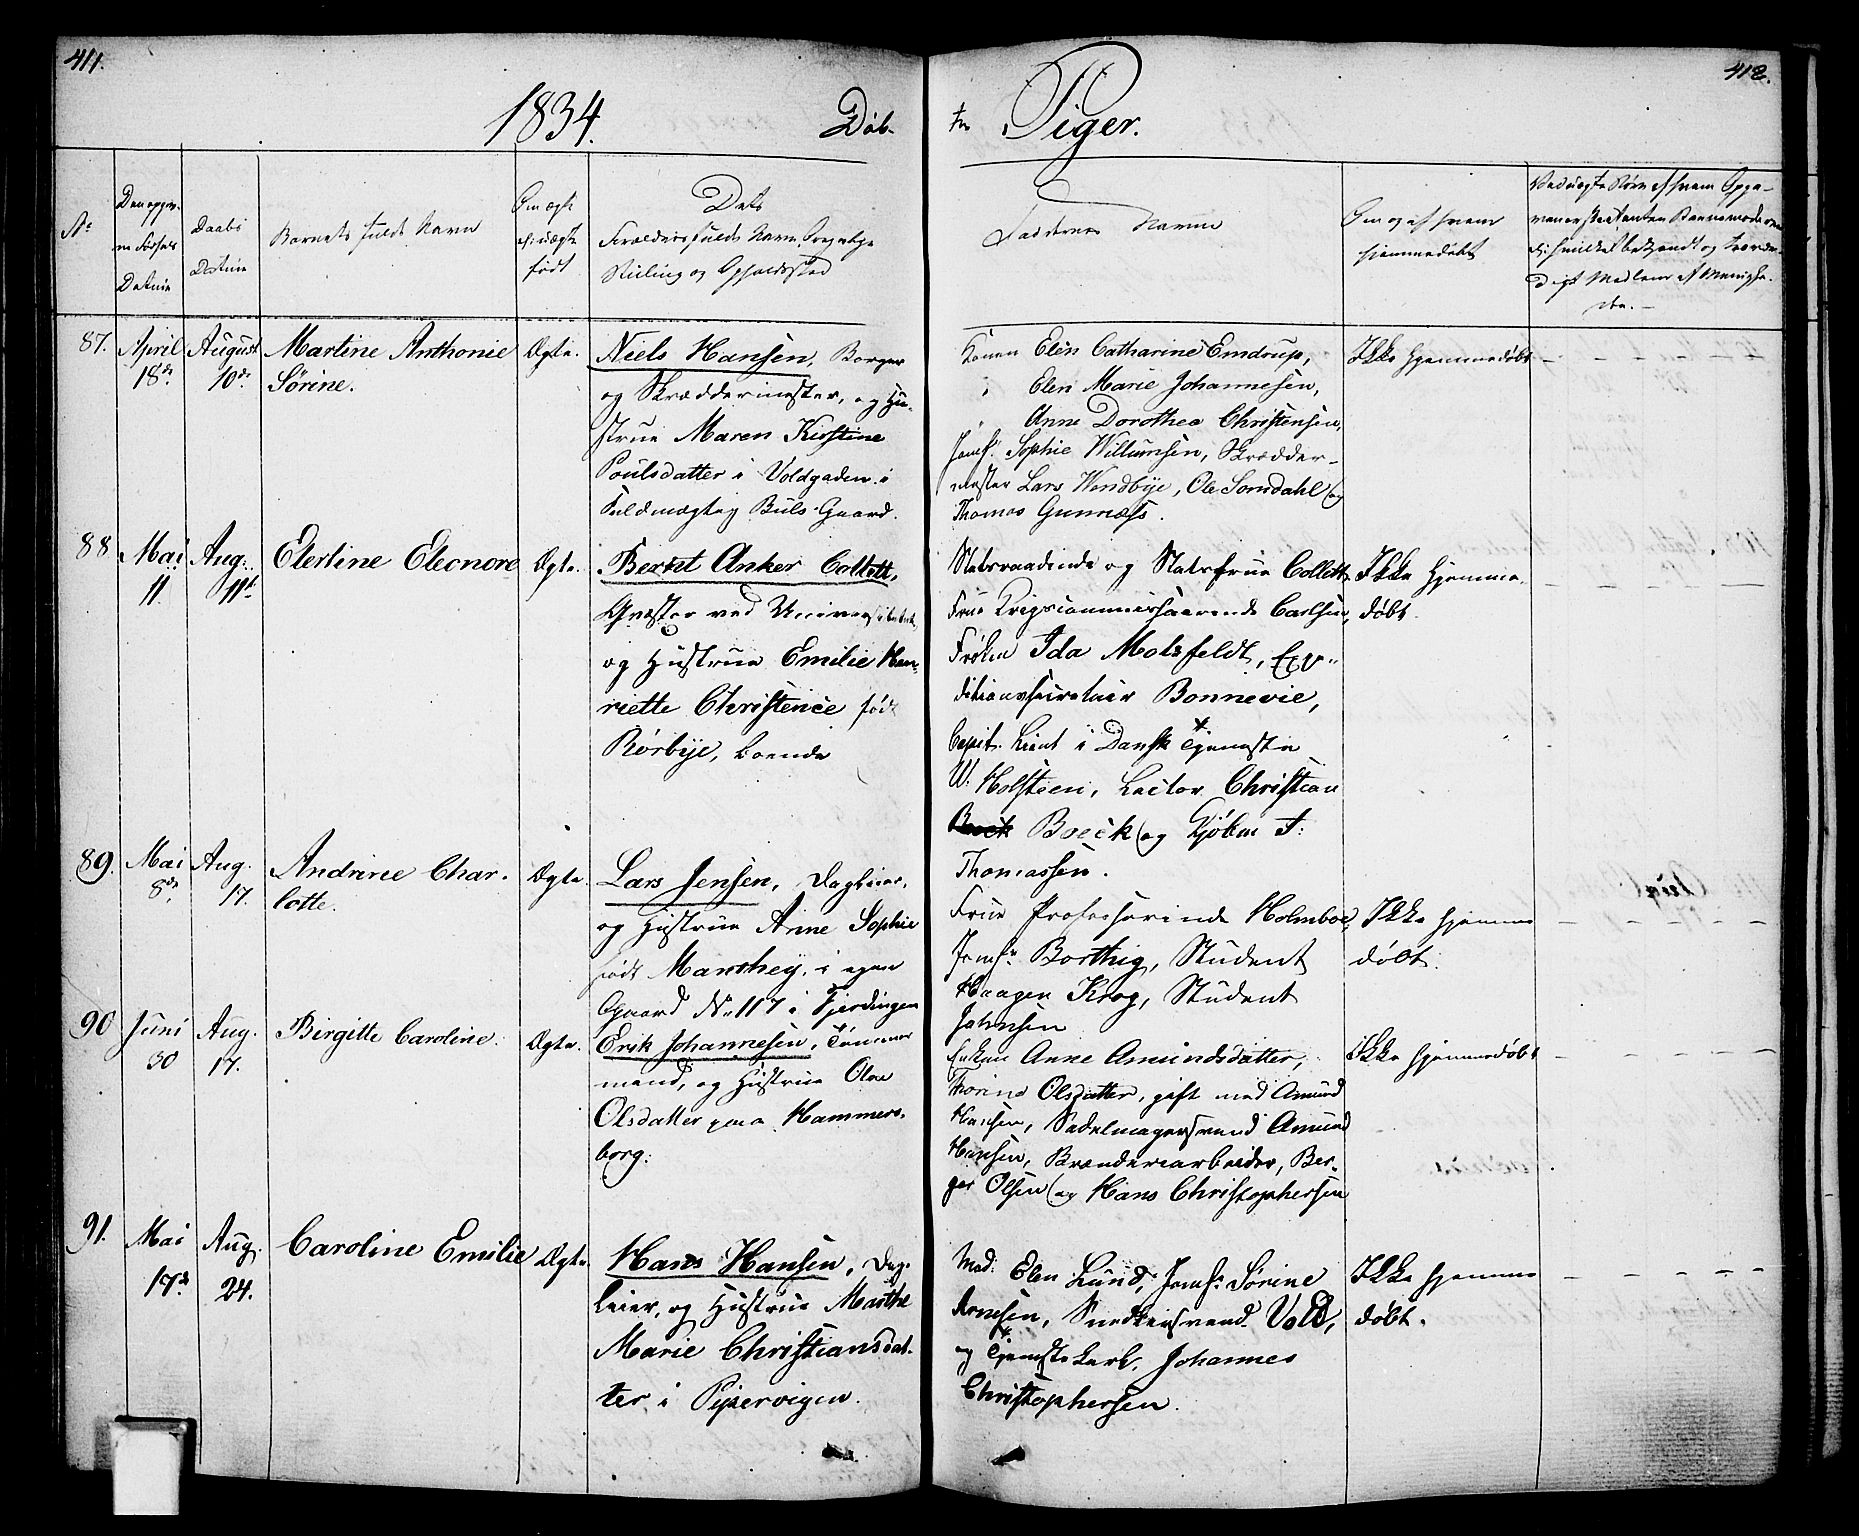 411.
412.
1834.
Døb-
te Piger.
No
Den opgiv-
ne Fødsels
Datum
Daabs
Datum
Barnets fulde Navn
Om ægte
el. uægte
født
Dets
Forældres fulde Navn, Borgerlige
Stilling og Opholdssted
Faddernes Navne
Om og af hvem
hjemmedøbt
87.
April
18de
August
10de
Martine Anthonie
Sørine.
Ægte.
Niels Hansen, Borger
og Skræddermester, og Hu-
strue Maren Kirstine
Poulsdatter i Voldgaden i
Fuldmægtig Buls Gaard.
Konen Elen Catharine Emdrup,
" Elen Marie Johannesen,
" Anne Dorothea Christensen,
Jomf. Sophie Willumsen, Skrædder-
mester Lars Wendbye, Ole Somdahl og
Thomas Gunnæss.
Ikke hjemmedøbt
88
Mai
11.
Aug.
11te
Elertine Eleonore
Ægte.
Bernt Anker Collett,
Qvæstor ved Universitetet,
og Hustrue Emilie Hen-
riette Christence født
Rørbye, boende
Statsraadinde og Statsfrue Collett,
Frue Krigscommissairinde Carlsen,
Frøken Ida Motzfeldt, Expe-
ditionssecretair Bonnevie,
Capit. Lieut i Dansk Tjeneste
W. Holsteen, Lector Christian
Boeck og Kjøbm T:
Thomassen.
Ikke hjemme-
døbt.
89.
Mai
8de
Aug.
17.
Andrine Char-
lotte.
Ægte.
Lars Jensen, Dagleier,
og Hustrue Anne Sophie
født Manthey, i egen
Gaard No 117 i Fjerdingen
Frue Professorinde Holmboe,
Jomfr Borthig, Student
Haagen Krog, Student
Johnsen
Ikke hjemme
døbt.
90
Juni
30
Aug.
17.
Birgitte Caroline.
Ægte.
Erik Johannesen, Tømmer
mand, og Hustrue Olea
Olsdatter paa Hammers-
borg.
Enken Anne Amundsdatter,
Thorine Olsdatter, gift med Amund
Hansen, Sadelmagersvend Amund
Hansen, Brænderiarbeider, Ber-
ger Olsen og Hans Christophersen
Ikke hjemmedøbt
91.
Mai
17de
Aug.
24.
Caroline Emilie
Ægte.
Hans Hansen, Dag-
leier, og Hustrue Marthe
Marie Christiansdat-
ter i Pipervigen.
Mad. Elen Lund, Jomf. Sørine
Arnesen, Snedkersvend Vold,
og Tjenestekarl, Johannes
Christophersen.
Ikke hjemme
døbt.